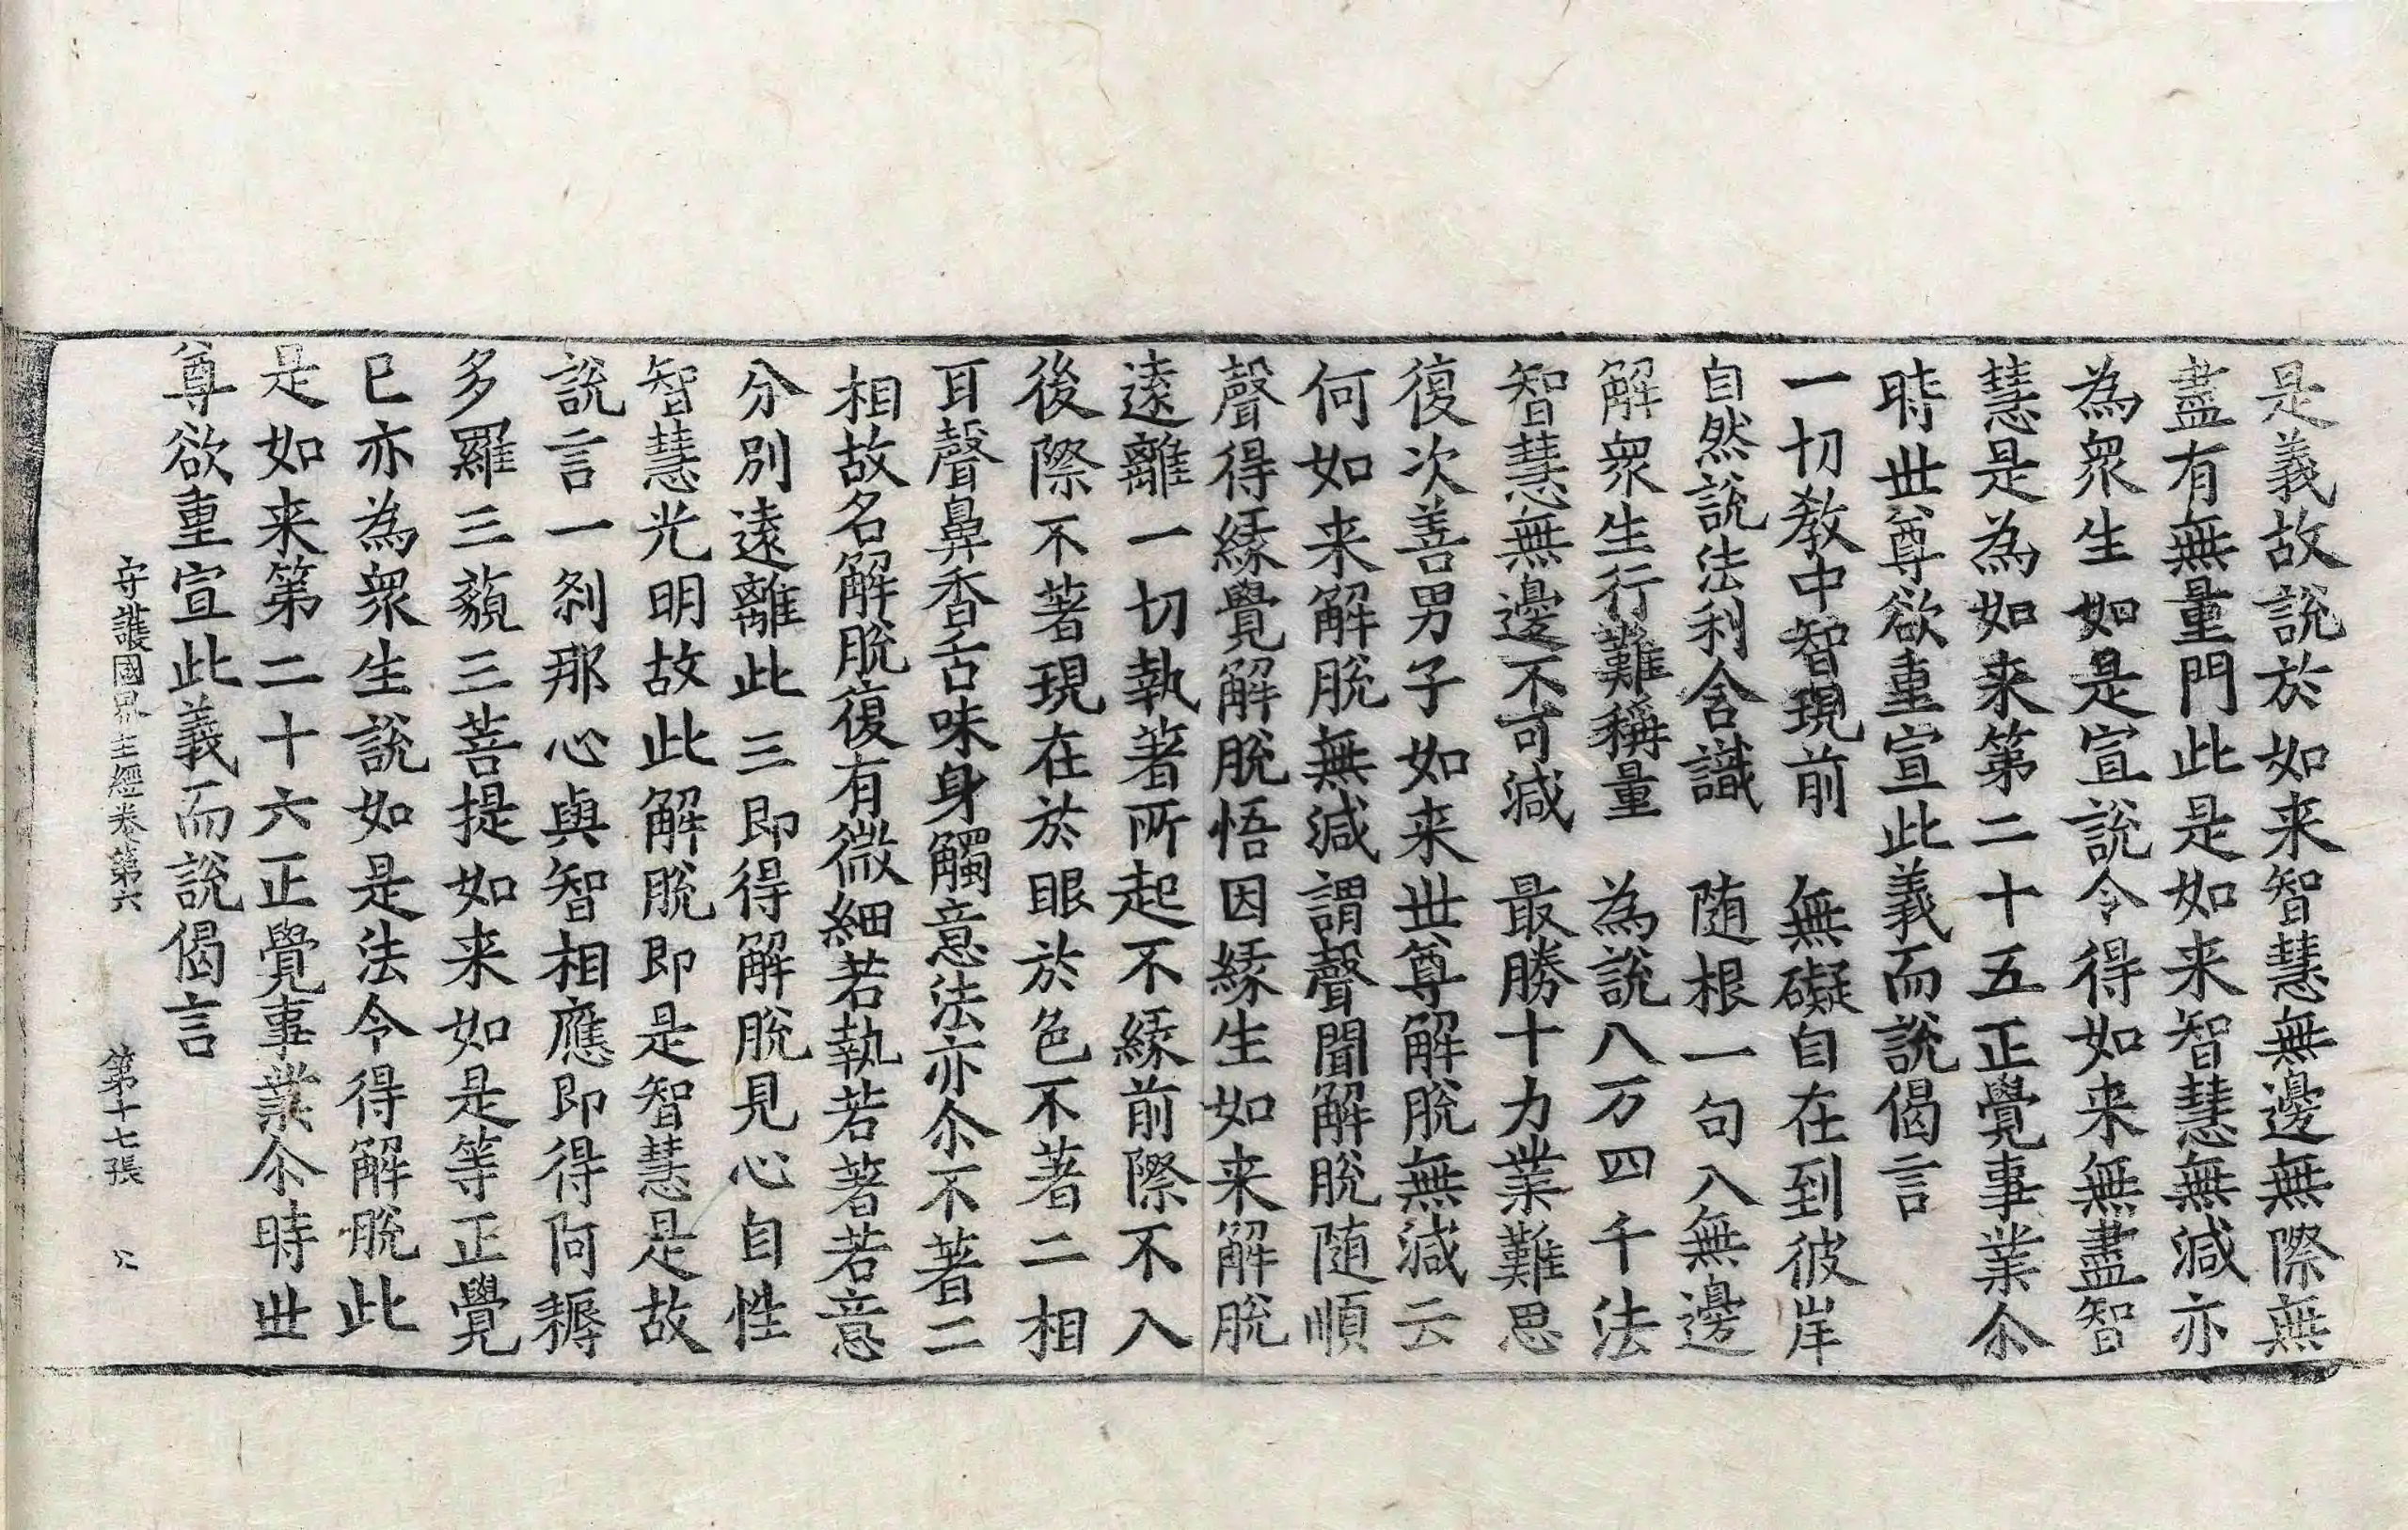 是義故說於如来智慧無邊無際無
盡有無量門此是如来智慧無減亦
為衆生如是宣說令得如来無盡智
慧是為如来第二十五正覺事業尒
時世尊欲重宣此義而說偈言
一切教中智現前　無礙自在到彼岸
自然說法利含識　随根一句八無邊
解衆生行難稱量　為說八万四千法
智慧無邊不可減　最勝十力業難思
復次善男子如来世尊解脫無減云
何如来解脫無減謂聲聞解脫随順
聲得緣覺解脫悟因緣生如来解脫
遠離一切執著所起不緣前際不入
後際不著現在於眼於色不著二相
耳聲鼻香舌味身觸意法亦尒不著二
相故名解脫復有微細若執若著若意
分別遠離此三即得解脫見心自性
智慧光明故此解脫即是智慧是故
說言一剎那心與智相應即得阿耨
多羅三藐三菩提如来如是等正覺
已亦為衆生說如是法令得解脫此
是如来第二十六正覺事業尒時世
尊欲重宣此義而說偈言
守護國界主經卷第六　第十七張